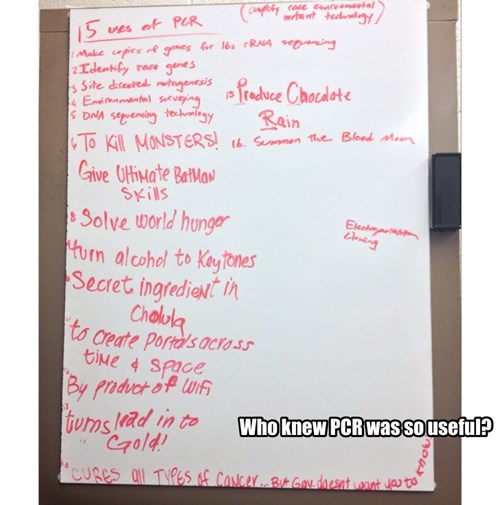 15 uses of PCR
(amplify rare environmental)
mutant technology)
1 Make copies of genes for 16s rRNA sequencing
2 Identify rare genes
3 Site directed mutagenesis
4 Environmental surveying
5 DNA sequencing technology
15 Produce Chocolate
Rain
6 To Kill MONSTERS!
16. Summon the Blood Moon
Give Ultimate BatMaN
SKills
8 Solve world hunger
turn alcohol to Keytones
Secret ingredient in
Cholula
to create portals across
time & space
By product of wifi
turns lead in to
Gold!
CURES all TYPES of CaNcer... But Gov. doesnt want you to know
cloning
Who knew PCR was so useful?